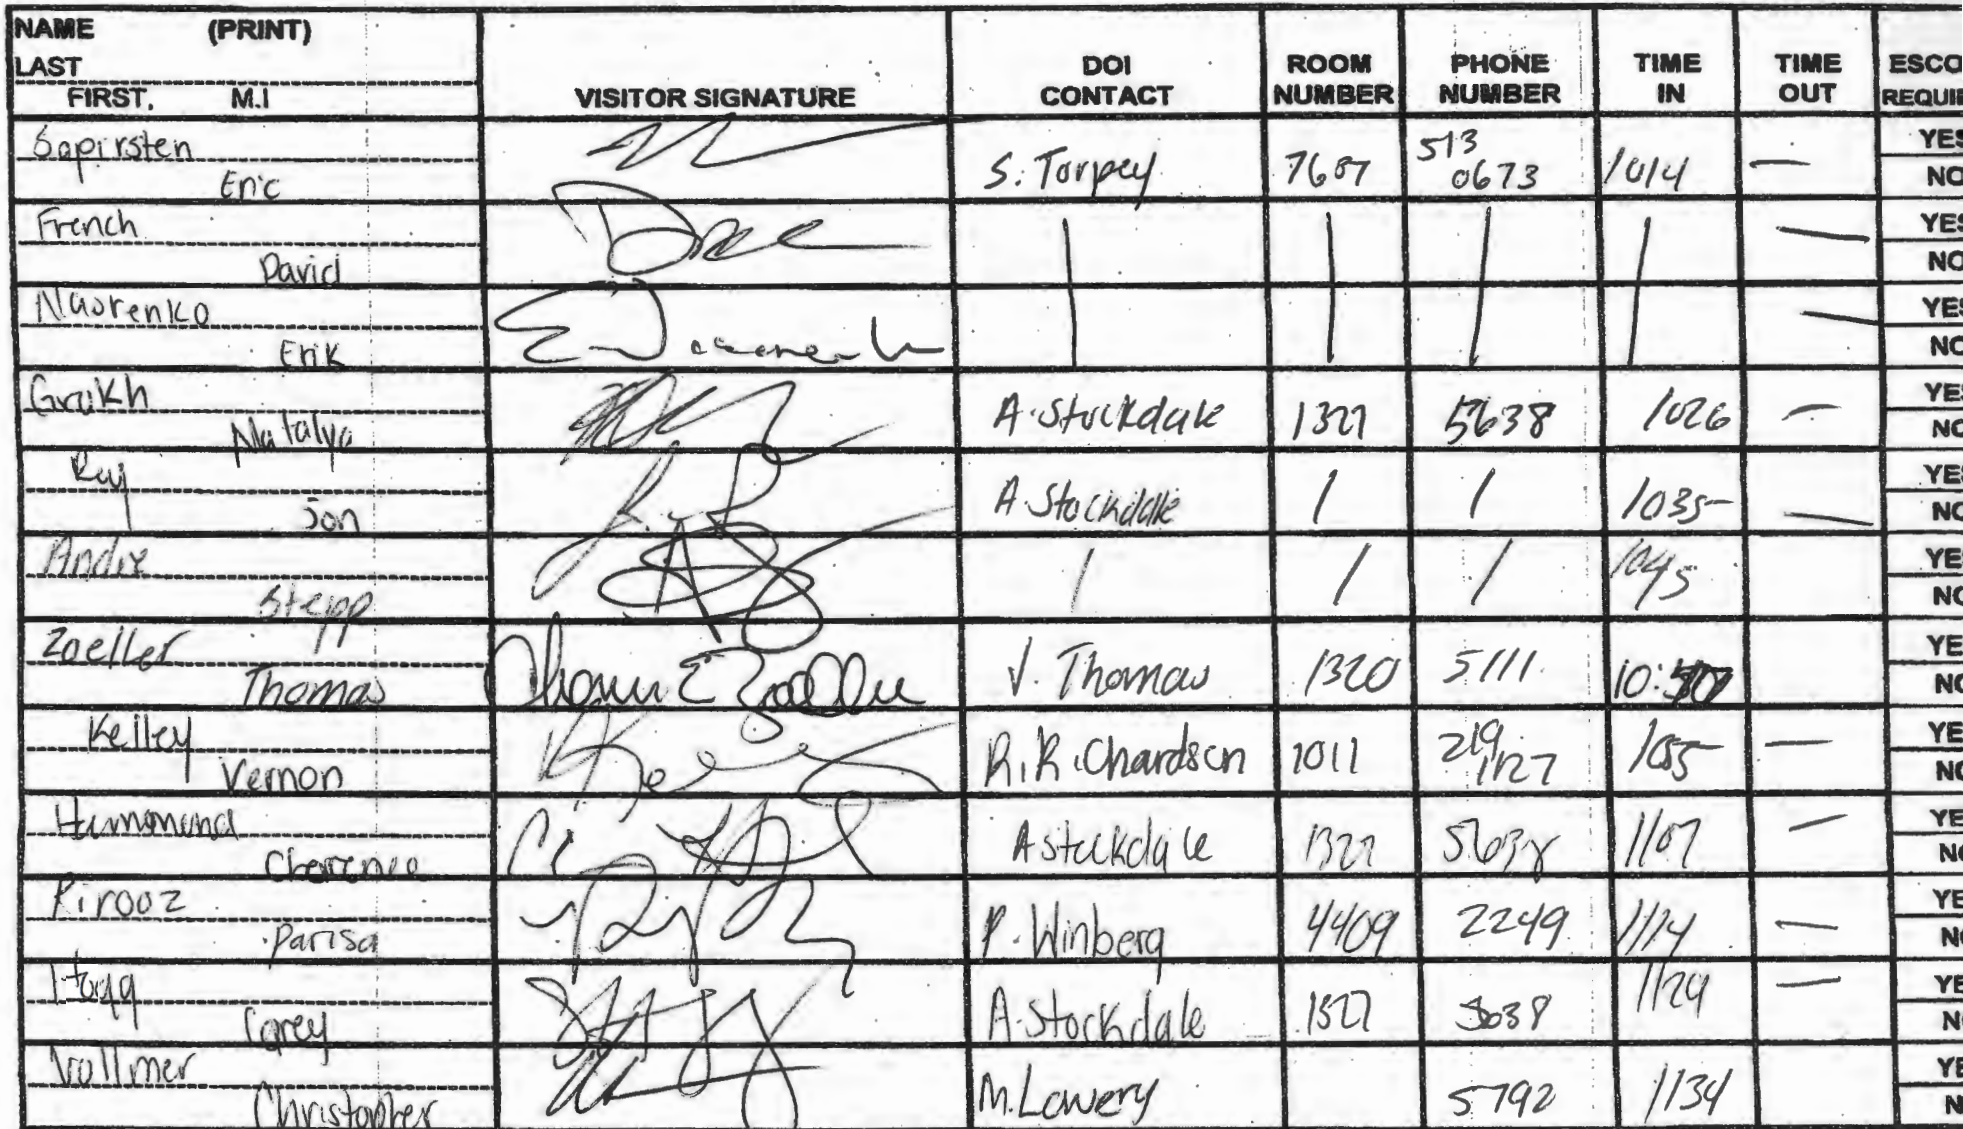 NAME (PRINT)
LAST
FIRST, M.I
VISITOR SIGNATURE
DOI CONTACT
ROOM NUMBER
PHONE NUMBER
TIME IN
TIME OUT
ESCO
REQUIR
Sapirsten
Eric
S. Torpey 7607 513 0673 1014 — YES
NO
French
David
— YES
NO
Nasrenko
Erik
— YES
NO
Grukh
Natalya
A. Stockdale 1327 5638 1026 — YES
NO
Ray
Jon
A. Stockdale / / 1035 — YES
NO
Andre
Stepp
/ / / 1045 YES
NO
Zoeller
Thomas
Thomas E Zoeller
V. Thomas 1320 5111 YES
NO
Kelley
Vernon
R. Richardson 1011 219 1127 1055 — YES
NO
Hammond
A Stockdale 1327 5638 1107 — YE
NO
Pirooz
Parisa
P. Winberg 4409 2249 1114 — YE
NO
Hogg
Corey
A. Stockdale 1327 5638 1124 — YE
N
Vollmer
Christopher
M. Lowery 5792 1134 YE
N